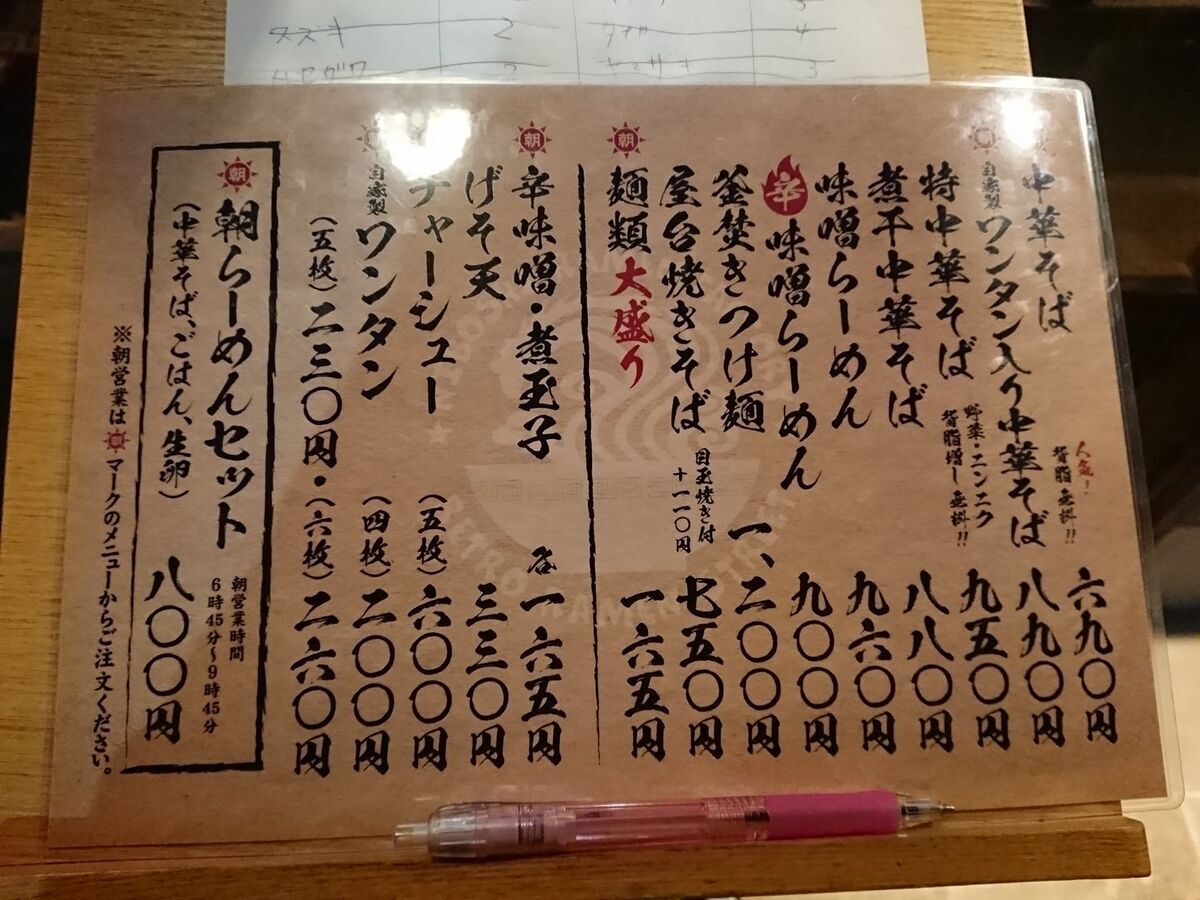 スズキ 2
4
3
朝 中華そば 人気!背脂 無料!! 六九〇円
朝 自家製 ワンタン入り中華そば 八九〇円
特中華そば 野菜・ニンニク 背脂増し 無料!! 九五〇円
煮干中華そば 八八〇円
味噌らーめん 九六〇円
辛 味噌らーめん 九〇〇円
釜焚きつけ麺 一、二〇〇円
屋台焼きそば 目玉焼き付 十一一〇円 七五〇円
朝 麺類大盛り 一六五円
朝 辛味噌・煮玉子 各 一六五円
げそ天 三三〇円
チャーシュー (五枚) 六〇〇円
朝 自家製 ワンタン (四枚) 二〇〇円
(五枚) 二三〇円・(六枚) 二六〇円
朝 朝らーめんセット 朝営業時間 6時45分〜9時45分
(中華そば、ごはん、生卵) 八〇〇円
※朝営業は 朝 マークのメニューからご注文ください。